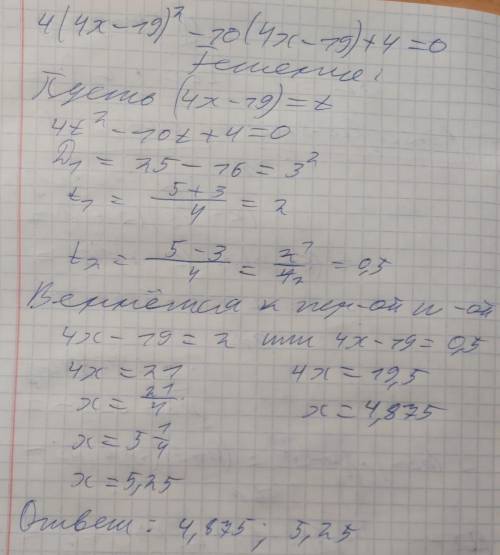 4(4x-19)² -10(4x-19)+4=0
Решение:
Пусть (4x-19)=t
4t²-10t+4=0
D₁ = 25-16=3²
t₁ = (5+3)/4 = 2
t₂ = (5-3)/4 = 2¹/4₂ = 0,5
Вернёмся к пер-ой и -ой
4x-19=2 или 4x-19=0,5
4x=21 4x=19,5
x=21/4 x=4,875
x=5 1/4
x=5,25
Ответ: 4,875; 5,25